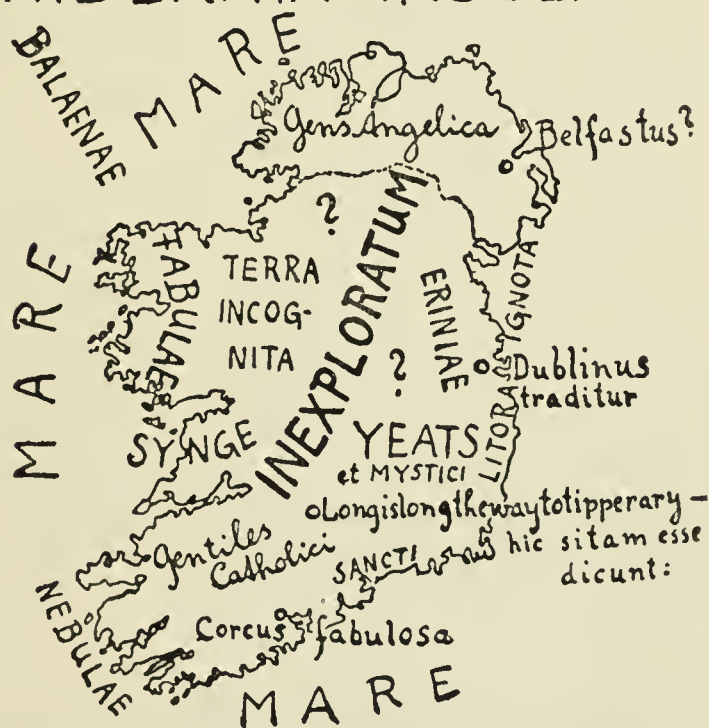 MARE
BALAENAE
Gens Angelica
Belfastus?
MARE
?
FABULAE
TERRA
INCOG-
NITA
INEXPLORATUM
ERINIAE
LITORA IGNOTA
?
Dublinus
traditur
SYNGE
YEATS
et MYSTICI
oLongislongthewaytotipperary—
hic sitam esse
dicunt:
Gentiles
Catholici
SANCTI
NEBULAE
Corcus fabulosa
MARE